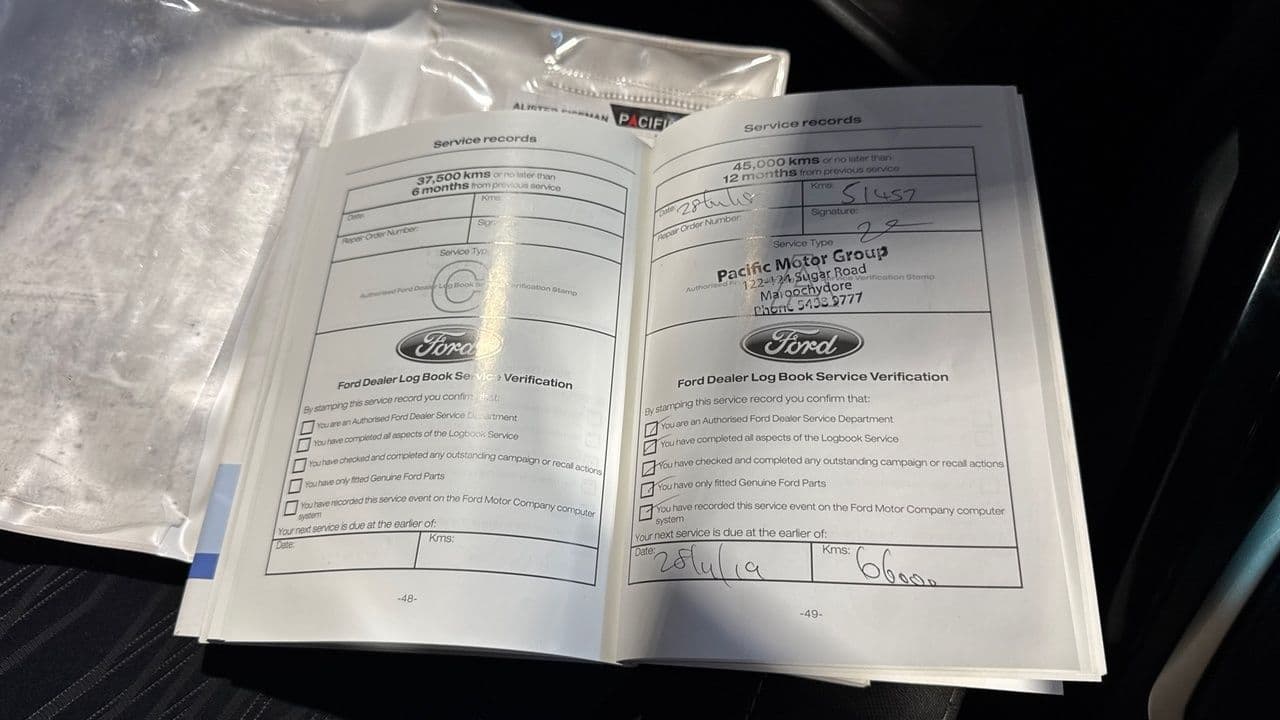 PACIFI
Service records
37,500 kms or no later than
6 months from previous service
Date:
Kms:
Repair Order Number:
Sign
Service Typ
C
Authorised Ford Dealer Log Book Se rification Stamp
Ford
Ford Dealer Log Book Service Verification
By stamping this service record you confirm that:
You are an Authorised Ford Dealer Service Department
You have completed all aspects of the Logbook Service
You have checked and completed any outstanding campaign or recall actions
You have only fitted Genuine Ford Parts
You have recorded this service event on the Ford Motor Company computer
system
Your next service is due at the earlier of:
Date:
Kms:
-48-
Service records
45,000 kms or no later than
12 months from previous service
Date:
Kms: 51457
Repair Order Number:
Signature:
Service Type
Pacific Motor Group
Authorised Service Verification Stamp
122-124 Sugar Road
Maroochydore
Phone 5458 9777
Ford
Ford Dealer Log Book Service Verification
By stamping this service record you confirm that:
You are an Authorised Ford Dealer Service Department
You have completed all aspects of the Logbook Service
You have checked and completed any outstanding campaign or recall actions
You have only fitted Genuine Ford Parts
You have recorded this service event on the Ford Motor Company computer
system
Your next service is due at the earlier of:
Date: 28/4/19
Kms: 66000
-49-